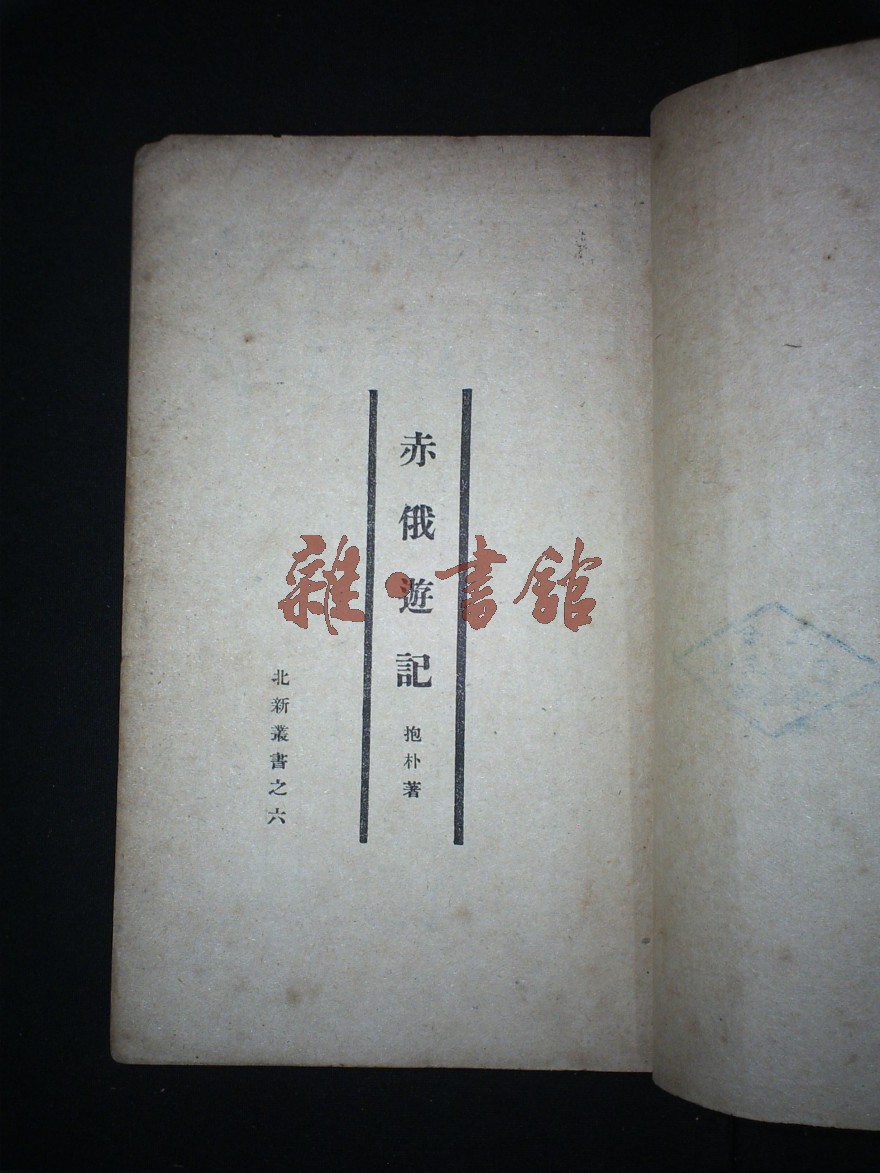 赤俄遊記
抱朴著
北新叢書之六
雜·書館